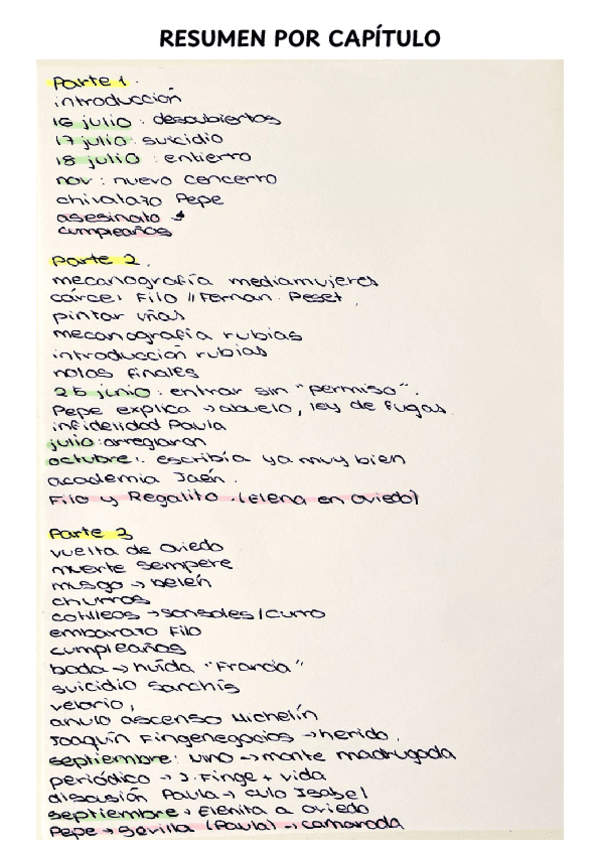 RESUMEN POR CAPÍTULO
Parte 1.
introducción
16 julio: descubiertos
17 julio: suicidio
18 julio: entierro
nov: nuevo cencerro
chivatazo Pepe
asesinato
cumpleaños
Parte 2.
mecanografía mediamujeres
cárcel Filo // Fernan. Peset.
pintar uñas
mecanografía rubias
introducción rubias
notas finales
25 junio: entrar sin "permiso".
Pepe explica → abuelo, ley de fugas.
infidelidad Paula
julio: arreglaron
octubre: escribía ya muy bien
academia Jaén.
Filo y Regalito. (Elena en Oviedo)
Parte 3
vuelta de Oviedo
muerte Sempere
musgo → belén
churros
cotilleos → sonsoles / curro
embarazo Filo
cumpleaños
boda → huída "Francia"
suicidio Sanchís
velorio,
anulo ascenso Michelín
Joaquín Fingenegocios → herido.
septiembre: Nino → monte madrugada
periódico → J. Finge + vida
discusión Paula → culo Isabel
septiembre → Elenita a Oviedo
Pepe → Sevilla (Paula) → camarada